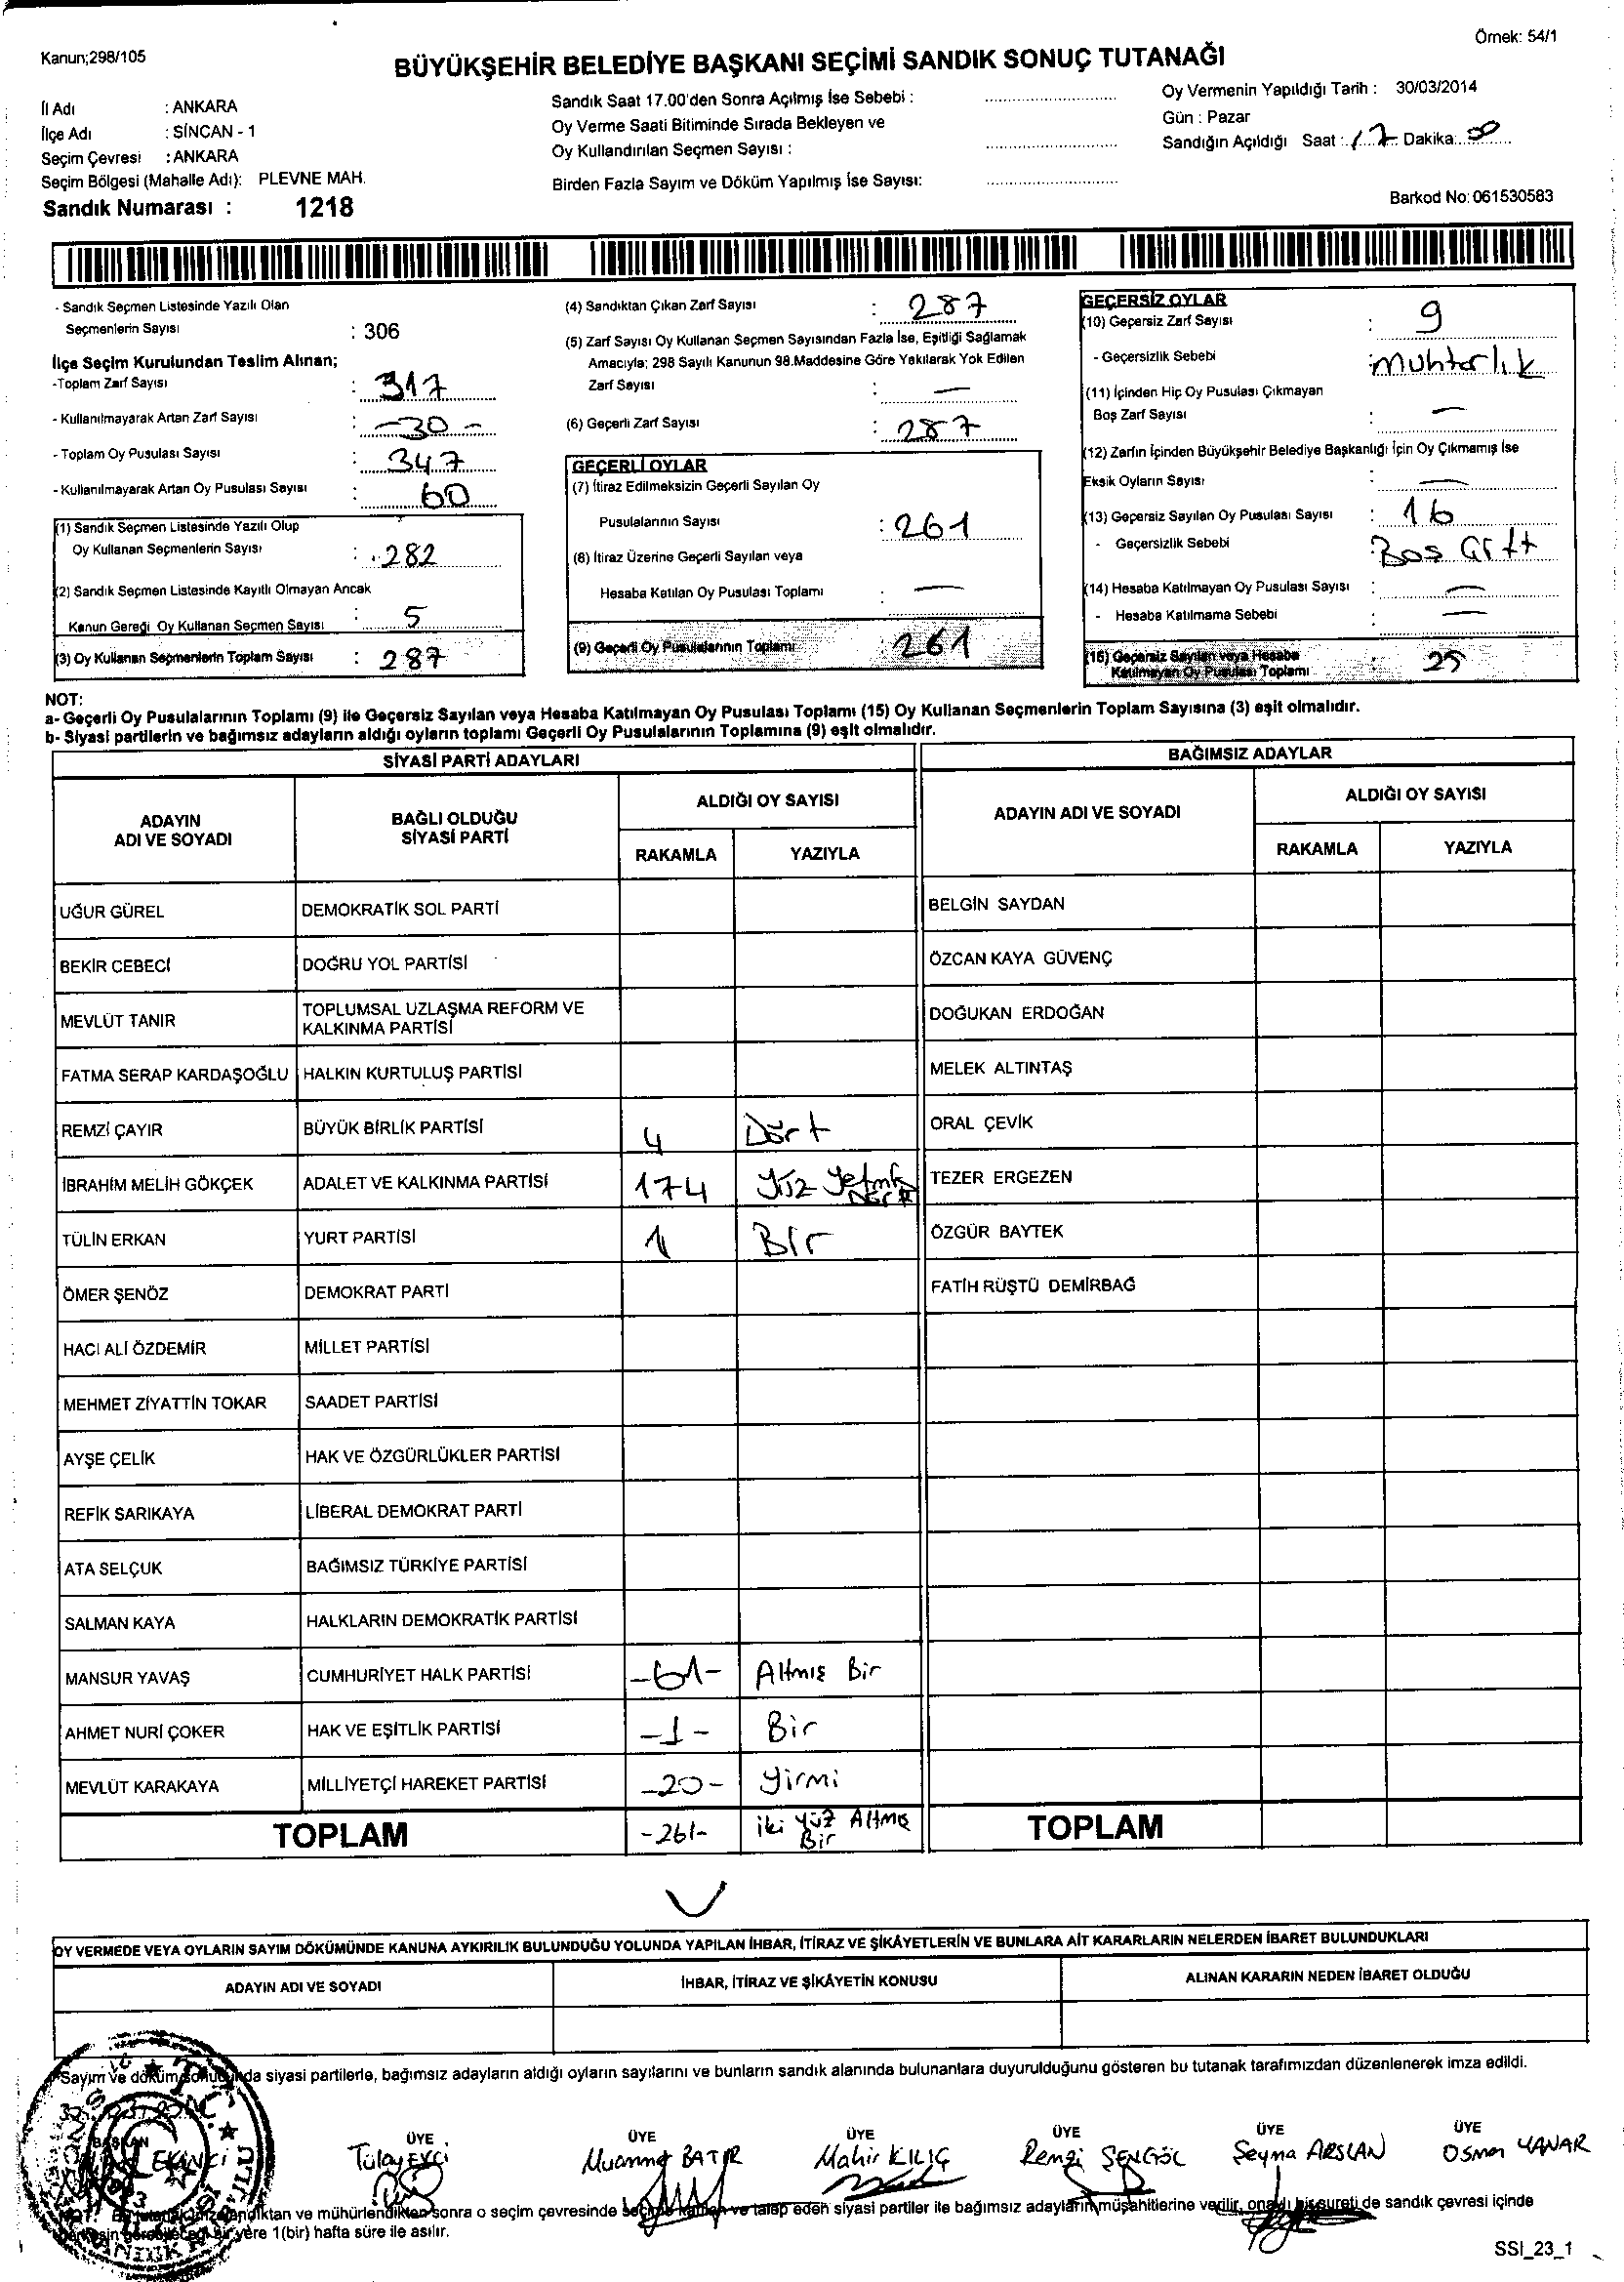 Örnek: 54/1
Kanun;298/105
BÜYÜKŞEHİR BELEDİYE BAŞKANI SEÇİMİ SANDIK SONUÇ TUTANAĞI
İl Adı : ANKARA
İlçe Adı : SİNCAN - 1
Seçim Çevresi : ANKARA
Seçim Bölgesi (Mahalle Adı): PLEVNE MAH.
Sandık Numarası : 1218
Sandık Saat 17.00'den Sonra Açılmış İse Sebebi :
Oy Verme Saati Bitiminde Sırada Bekleyen ve
Oy Kullandırılan Seçmen Sayısı :
Birden Fazla Sayım ve Döküm Yapılmış İse Sayısı:
Oy Vermenin Yapıldığı Tarih : 30/03/2014
Gün : Pazar
Sandığın Açıldığı Saat : 17 Dakika:
Barkod No: 061530583
- Sandık Seçmen Listesinde Yazılı Olan
Seçmenlerin Sayısı : 306
İlçe Seçim Kurulundan Teslim Alınan;
-Toplam Zarf Sayısı : 317
- Kullanılmayarak Artan Zarf Sayısı : -30-
- Toplam Oy Pusulası Sayısı : 347
- Kullanılmayarak Artan Oy Pusulası Sayısı : 60
(1) Sandık Seçmen Listesinde Yazılı Olup
Oy Kullanan Seçmenlerin Sayısı : 282
(2) Sandık Seçmen Listesinde Kayıtlı Olmayan Ancak
Kanun Gereği Oy Kullanan Seçmen Sayısı : 5
(3) Oy Kullanan Seçmenlerin Toplam Sayısı : 287
(4) Sandıktan Çıkan Zarf Sayısı : 287
(5) Zarf Sayısı Oy Kullanan Seçmen Sayısından Fazla İse, Eşitliği Sağlamak
Amacıyla; 298 Sayılı Kanunun 98.Maddesine Göre Yakılarak Yok Edilen
Zarf Sayısı : —
(6) Geçerli Zarf Sayısı : 287
GEÇERLİ OYLAR
(7) İtiraz Edilmeksizin Geçerli Sayılan Oy
Pusulalarının Sayısı : 261
(8) İtiraz Üzerine Geçerli Sayılan veya
Hesaba Katılan Oy Pusulası Toplamı : —
(9) Geçerli Oy Pusulalarının Toplamı : 261
GEÇERSİZ OYLAR
(10) Geçersiz Zarf Sayısı : 9
- Geçersizlik Sebebi : muhtarlık
(11) İçinden Hiç Oy Pusulası Çıkmayan
Boş Zarf Sayısı : —
(12) Zarfın İçinden Büyükşehir Belediye Başkanlığı İçin Oy Çıkmamış İse
Eksik Oyların Sayısı : —
(13) Geçersiz Sayılan Oy Pusulası Sayısı : 16
- Geçersizlik Sebebi : Boş Çift
(14) Hesaba Katılmayan Oy Pusulası Sayısı : —
- Hesaba Katılmama Sebebi : —
(15) Geçersiz Sayılan veya Hesaba
Katılmayan Oy Pusulası Toplamı : 25
NOT:
a- Geçerli Oy Pusulalarının Toplamı (9) ile Geçersiz Sayılan veya Hesaba Katılmayan Oy Pusulası Toplamı (15) Oy Kullanan Seçmenlerin Toplam Sayısına (3) eşit olmalıdır.
b- Siyasi partilerin ve bağımsız adayların aldığı oyların toplamı Geçerli Oy Pusulalarının Toplamına (9) eşit olmalıdır.
SİYASİ PARTİ ADAYLARI BAĞIMSIZ ADAYLAR
ADAYIN ADI VE SOYADI BAĞLI OLDUĞU SİYASİ PARTİ ALDIĞI OY SAYISI ADAYIN ADI VE SOYADI ALDIĞI OY SAYISI
RAKAMLA YAZIYLA RAKAMLA YAZIYLA
UĞUR GÜREL DEMOKRATİK SOL PARTİ BELGİN SAYDAN
BEKİR CEBECİ DOĞRU YOL PARTİSİ ÖZCAN KAYA GÜVENÇ
MEVLÜT TANIR TOPLUMSAL UZLAŞMA REFORM VE KALKINMA PARTİSİ DOĞUKAN ERDOĞAN
FATMA SERAP KARDAŞOĞLU HALKIN KURTULUŞ PARTİSİ MELEK ALTINTAŞ
REMZİ ÇAYIR BÜYÜK BİRLİK PARTİSİ 4 Dört ORAL ÇEVİK
İBRAHİM MELİH GÖKÇEK ADALET VE KALKINMA PARTİSİ 174 Yüz Yetmiş Dört TEZER ERGEZEN
TÜLİN ERKAN YURT PARTİSİ 1 Bir ÖZGÜR BAYTEK
ÖMER ŞENÖZ DEMOKRAT PARTİ FATİH RÜŞTÜ DEMİRBAĞ
HACI ALİ ÖZDEMİR MİLLET PARTİSİ
MEHMET ZİYATTİN TOKAR SAADET PARTİSİ
AYŞE ÇELİK HAK VE ÖZGÜRLÜKLER PARTİSİ
REFİK SARIKAYA LİBERAL DEMOKRAT PARTİ
ATA SELÇUK BAĞIMSIZ TÜRKİYE PARTİSİ
SALMAN KAYA HALKLARIN DEMOKRATİK PARTİSİ
MANSUR YAVAŞ CUMHURİYET HALK PARTİSİ -61- Altmış Bir
AHMET NURİ ÇOKER HAK VE EŞİTLİK PARTİSİ -1- Bir
MEVLÜT KARAKAYA MİLLİYETÇİ HAREKET PARTİSİ -20- Yirmi
TOPLAM -261- iki yüz Altmış Bir TOPLAM
OY VERMEDE VEYA OYLARIN SAYIM DÖKÜMÜNDE KANUNA AYKIRILIK BULUNDUĞU YOLUNDA YAPILAN İHBAR, İTİRAZ VE ŞİKÂYETLERİN VE BUNLARA AİT KARARLARIN NELERDEN İBARET BULUNDUKLARI
ADAYIN ADI VE SOYADI İHBAR, İTİRAZ VE ŞİKÂYETİN KONUSU ALINAN KARARIN NEDEN İBARET OLDUĞU
Sayım ve döküm sonucunda siyasi partilerle, bağımsız adayların aldığı oyların sayılarını ve bunların sandık alanında bulunanlara duyurulduğunu gösteren bu tutanak tarafımızdan düzenlenerek imza edildi.
BAŞKAN ÜYE ÜYE ÜYE ÜYE ÜYE ÜYE
EKİNCİ Tülay EVCİ Muammer BATIR Mahir KILIÇ Remzi ŞENGÖL Şeyma ARSLAN Osman YANAR
sonra o seçim çevresinde seçime katılan ve talep eden siyasi partiler ile bağımsız adayların müşahitlerine verilir, onaylı bir sureti de sandık çevresi içinde
yere 1(bir) hafta süre ile asılır.
SSI_23_1